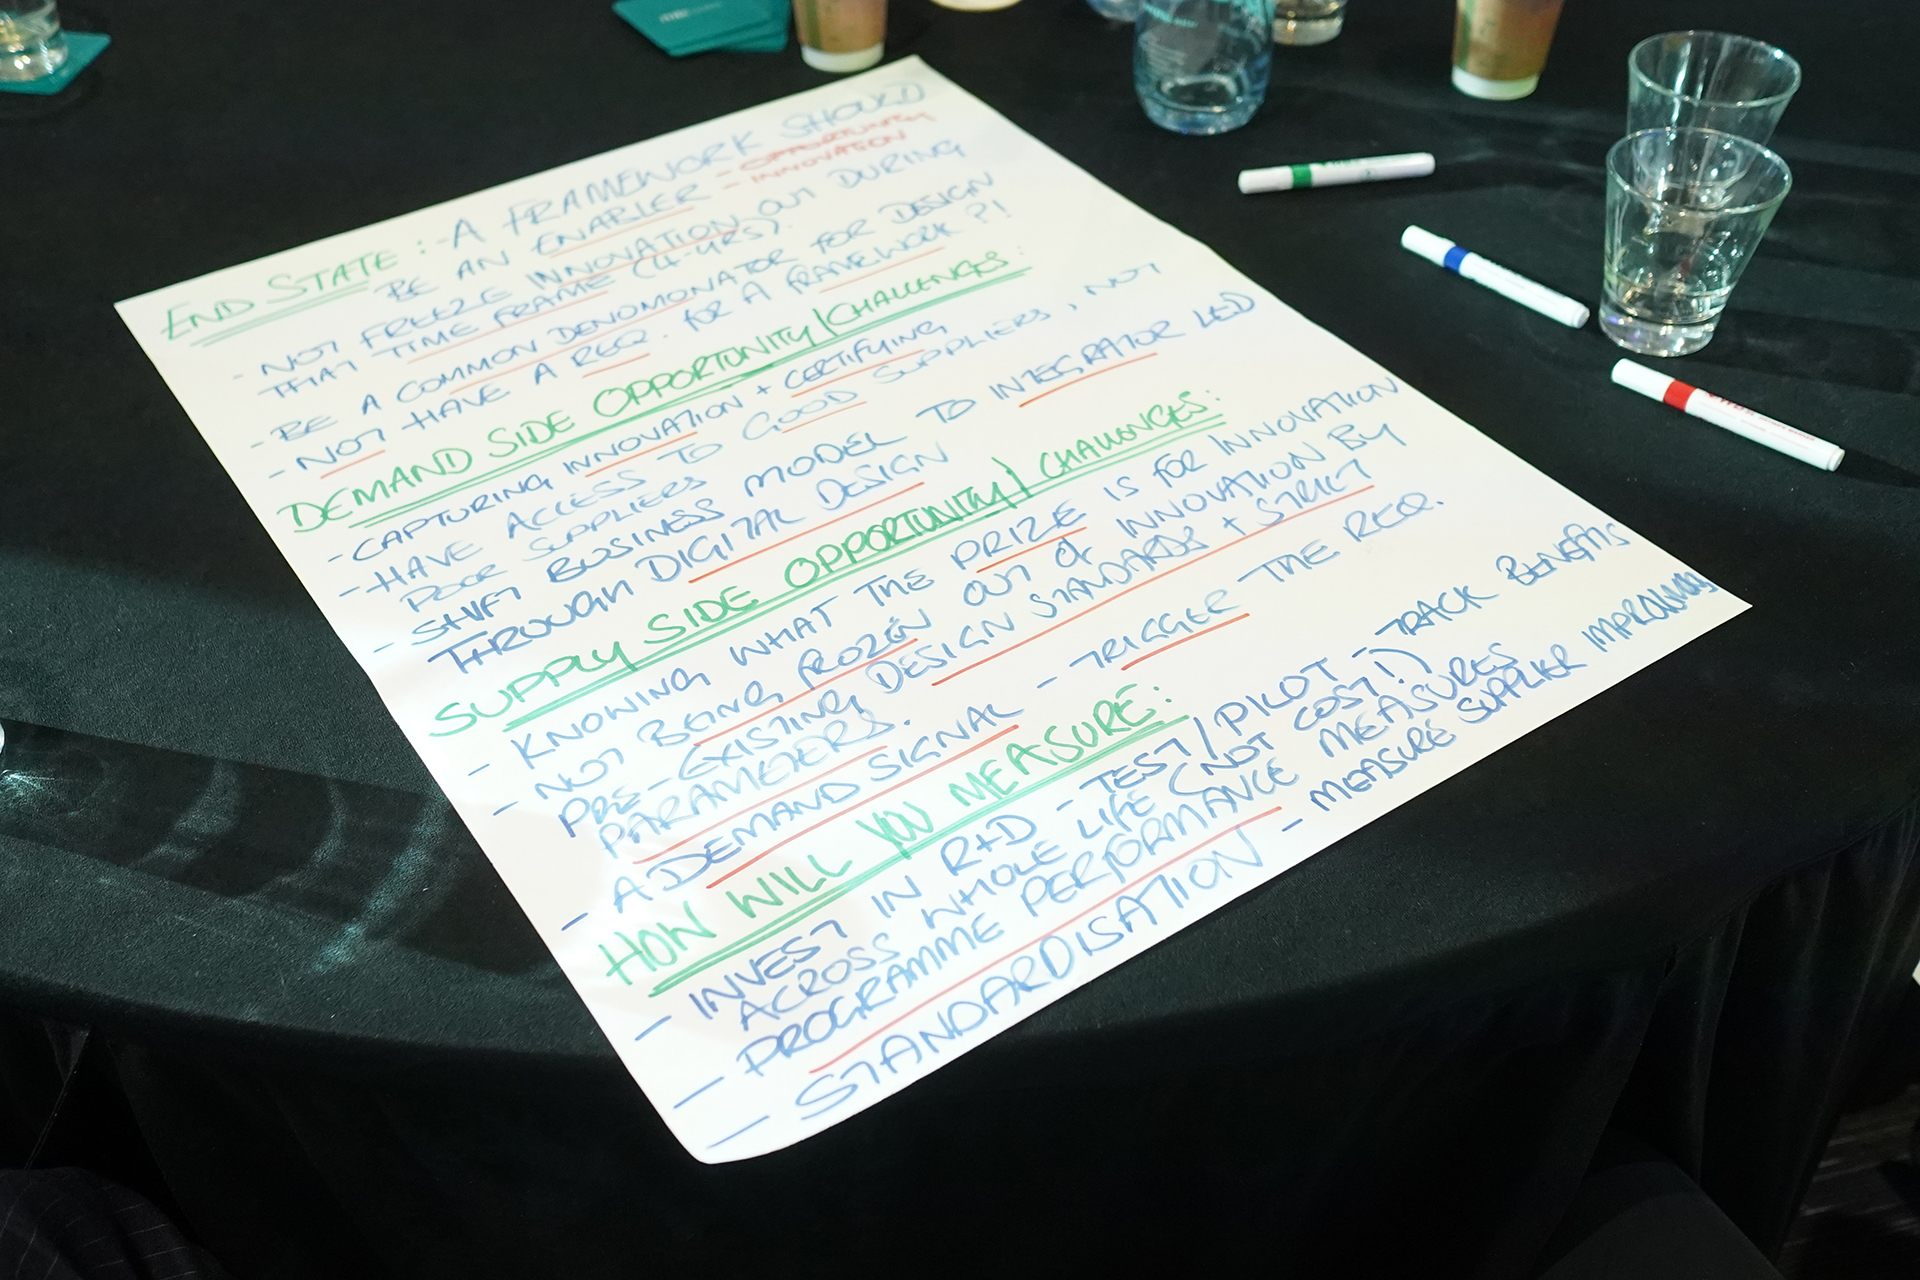 END STATE :- A FRAMEWORK SHOULD
BE AN ENABLER - OPPORTUNITY
- INNOVATION
- NOT FREEZE INNOVATION OUT DURING
THAT TIME FRAME (4-YRS).
- BE A COMMON DENOMONATOR FOR DESIGN
- NOT HAVE A REQ. FOR A FRAMEWORK ?!
DEMAND SIDE OPPORTUNITY/CHALLENGES:
- CAPTURING INNOVATION + CERTIFYING
- HAVE ACCESS TO GOOD SUPPLIERS, NOT
POOR SUPPLIERS
- SHIFT BUSINESS MODEL TO INTEGRATOR LED
THROUGH DIGITAL DESIGN
SUPPLY SIDE OPPORTUNITY/ CHALLENGES:
- KNOWING WHAT THE PRIZE IS FOR INNOVATION
- NOT BEING FROZEN OUT OF INNOVATION BY
PRE-EXISTING DESIGN STANDARDS + STRICT
PARAMETERS.
- A DEMAND SIGNAL - TRIGGER THE REQ.
HOW WILL YOU MEASURE:
- INVEST IN R+D - TEST/PILOT - TRACK BENEFITS
ACROSS WHOLE LIFE (NOT COST!)
- PROGRAMME PERFORMANCE MEASURES
- STANDARDISATION - MEASURE SUPPLIER IMPROVING